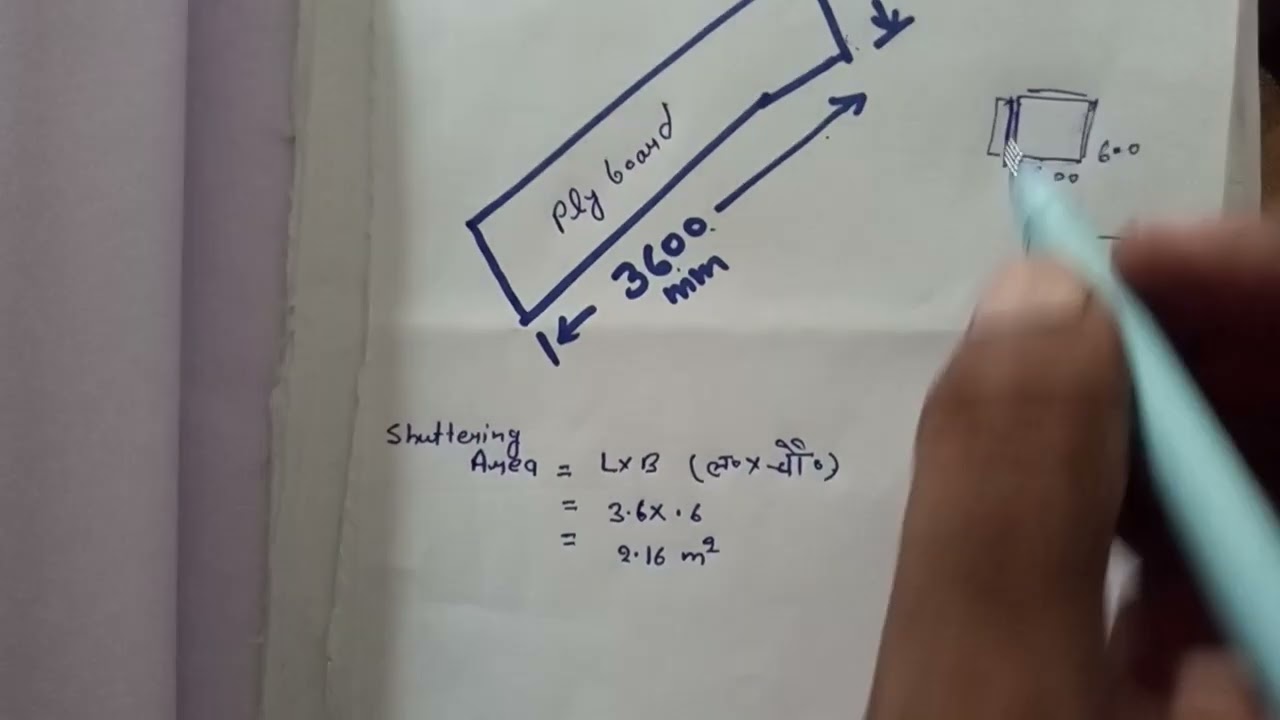 Ply board
3600
mm
600
00
Shuttering
Area = L×B (ल०×चौ०)
= 3.6×.6
= 2.16 m²